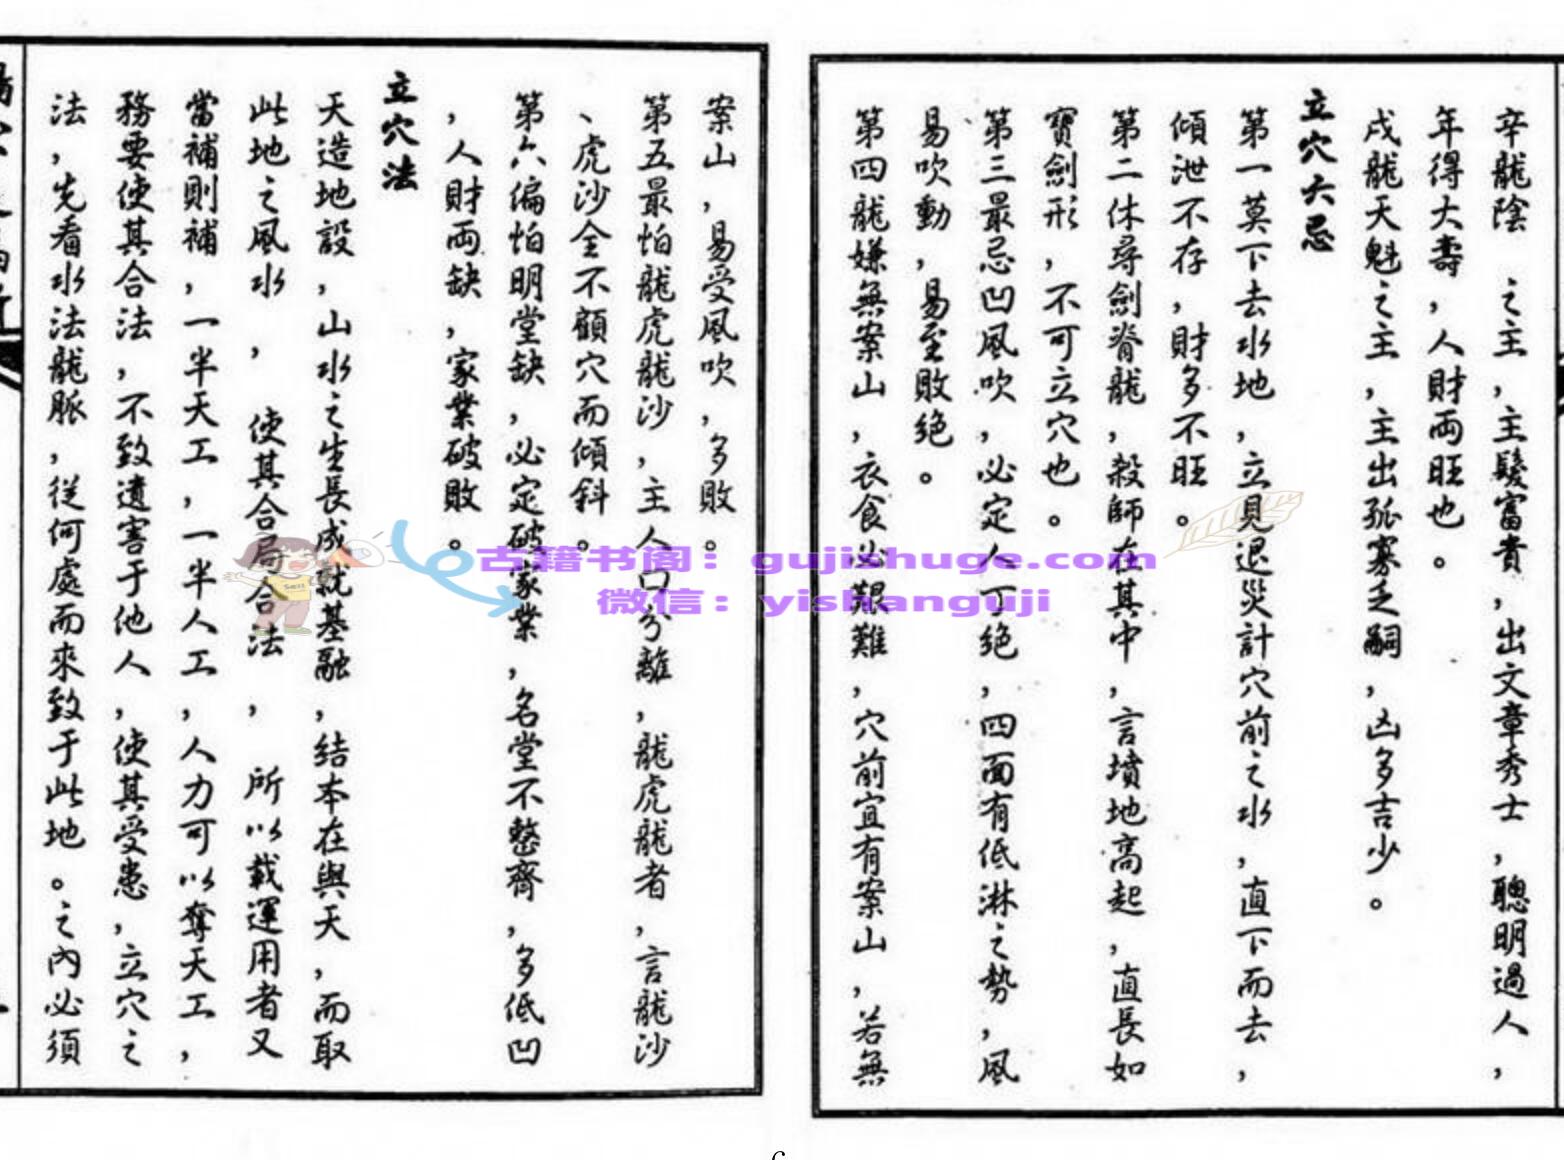 辛龍陰　之主，主驟富貴，出文章秀士，聰明過人，
年得大壽，人財兩旺也。
戌龍天魁之主，主出孤寡乏嗣，凶多吉少。
立穴六忌
第一莫下去水地，立見退災計穴前之水，直下而去，
傾泄不存，財多不旺。
第二休尋劍脊龍，殺師在其中，言墳地高起，直長如
寶劍形，不可立穴也。
第三最忌凹風吹，必定人丁絕，四面有低淋之勢，風
易吹動，易至敗絕。
第四龍嫌無案山，衣食必艱難，穴前宜有案山，若無
案山，易受風吹，多敗。
第五最怕龍虎龍沙，主人口分離，龍虎龍者，言龍沙
、虎沙全不顧穴而傾斜。
第六偏怕明堂缺，必定破家業，名堂不整齊，多低凹
，人財兩缺，家業破敗。
立穴法
天造地設，山水之生長成就基融，結本在與天，而取
此地之風水，使其合局合法，所以載運用者又
當補則補，一半天工，一半人工，人力可以奪天工，
務要使其合法，不致遺害于他人，使其受患，立穴之
法，先看水法龍脈，從何處而來致于此地。之內必須
古籍书阁：gujishuge.com
微信：yishanguji